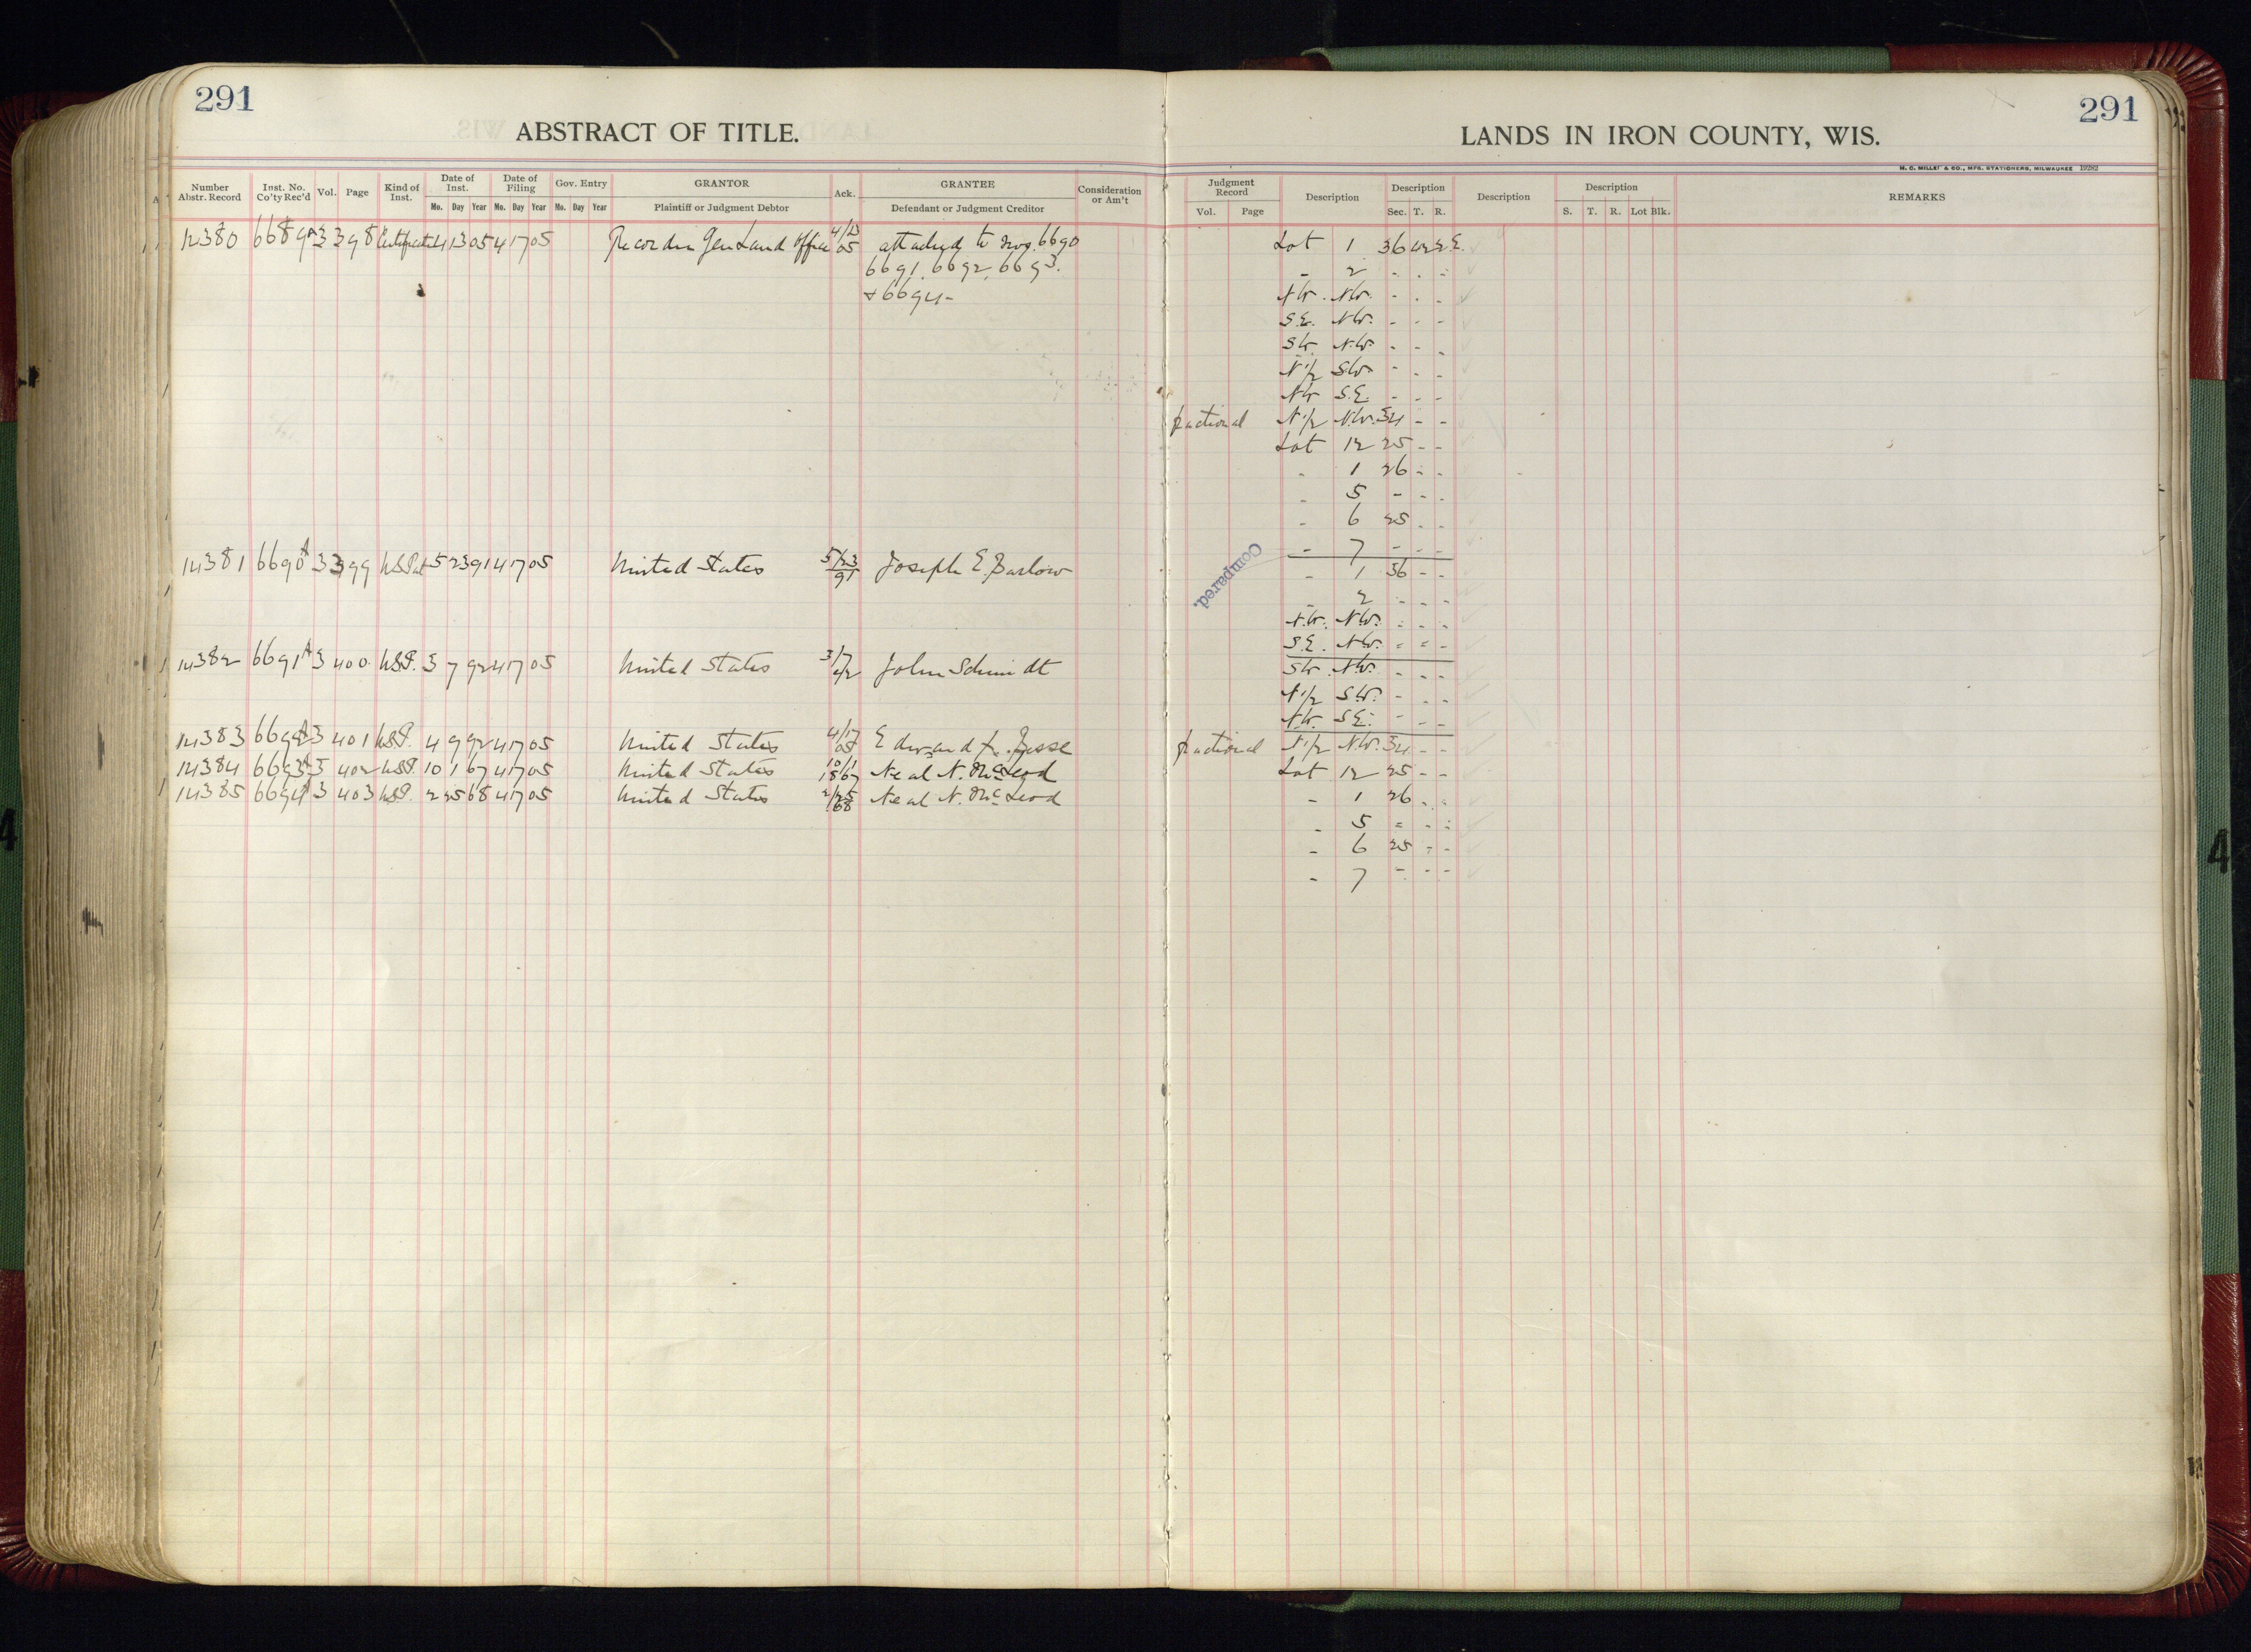 291
ABSTRACT OF TITLE.
Number Abstr. Record
Inst. No. Co'ty Rec'd
Vol.
Page
Kind of Inst.
Date of Inst.
Mo. Day Year
Date of Filing
Mo. Day Year
Gov. Entry
Mo. Day Year
GRANTOR
Plaintiff or Judgment Debtor
Ack.
GRANTEE
Defendant or Judgment Creditor
Consideration or Am't
14380 6689A 3 398 Certificate 4 13 05 4 17 05 Recorder Gen Land Office 4/13 05 attached to nos. 6690
6691, 6692, 6693.
+ 6694-
14381 6690A 3 399 U.S.Pat 5 23 91 4 17 05 United States 5/23 91 Joseph E. Barlow
14382 6691A 3 400 U.S.P. 3 7 92 4 17 05 United States 3/7 92 John Schmidt
14383 6692A 3 401 U.S.P. 4 9 92 4 17 05 United States 4/17 05 Edward
14384 6693A 3 402 U.S.P. 10 1 67 4 17 05 United States 10/1 1867 Neal N. McLeod
14385 6694A 3 403 U.S.P. 2 25 68 4 17 05 United States 2/25 68 Neal N. McLeod
291
LANDS IN IRON COUNTY, WIS.
H. C. MILLER & CO., MFG. STATIONERS, MILWAUKEE 19282
Judgment Record
Vol. Page
Description
Description
Sec. T. R.
Description
Description
S. T. R. Lot Blk.
REMARKS
Lot 1 36 42 2 E.
- 2 - - -
N.W. N.W. - - -
S.E. N.W. - - -
S.W. N.W. - - -
N 1/2 S.W. - - -
N.W. S.E. - - -
fractional N 1/2 N.W. 34 - -
Lot 12 25 - -
- 1 26 - -
- 5 - - -
- 6 25 - -
- 7 - - -
Compared.
- 1 36 - -
- 2 - - -
N.W. N.W. - - -
S.E. N.W. - - -
S.W. N.W. - - -
N 1/2 S.W. - - -
N.W. S.E. - - -
fractional N 1/2 N.W. 34 - -
Lot 12 25 - -
- 1 26 - -
- 5 - - -
- 6 25 - -
- 7 - - -